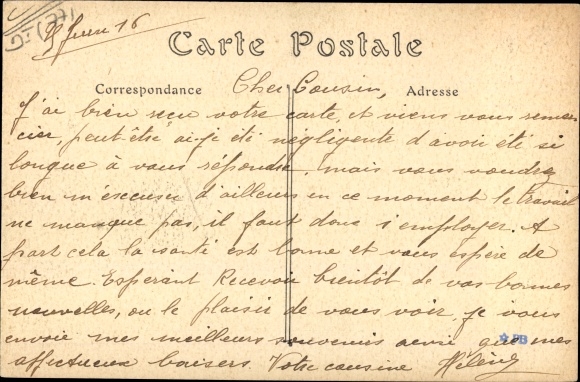 DI (77)
Juin 16
Carte Postale
Correspondance
Adresse
Cher Cousin,
J'ai bien reçu votre carte, et viens vous remer
cier, peut être ai-je été négligente d'avoir été si
longue à vous répondre, mais vous voudrez
bien m'excuser d'ailleurs en ce moment le travail
ne manque pas, il faut donc s'employer. A
part cela la santé est bonne et vous espère de
même. Espérant Recevoir bientôt de vos bonnes
nouvelles, ou le plaisir de vous voir, je vous
envoie mes meilleurs souvenirs ainsi que mes
affectueux baisers. Votre cousine Hélène
PB